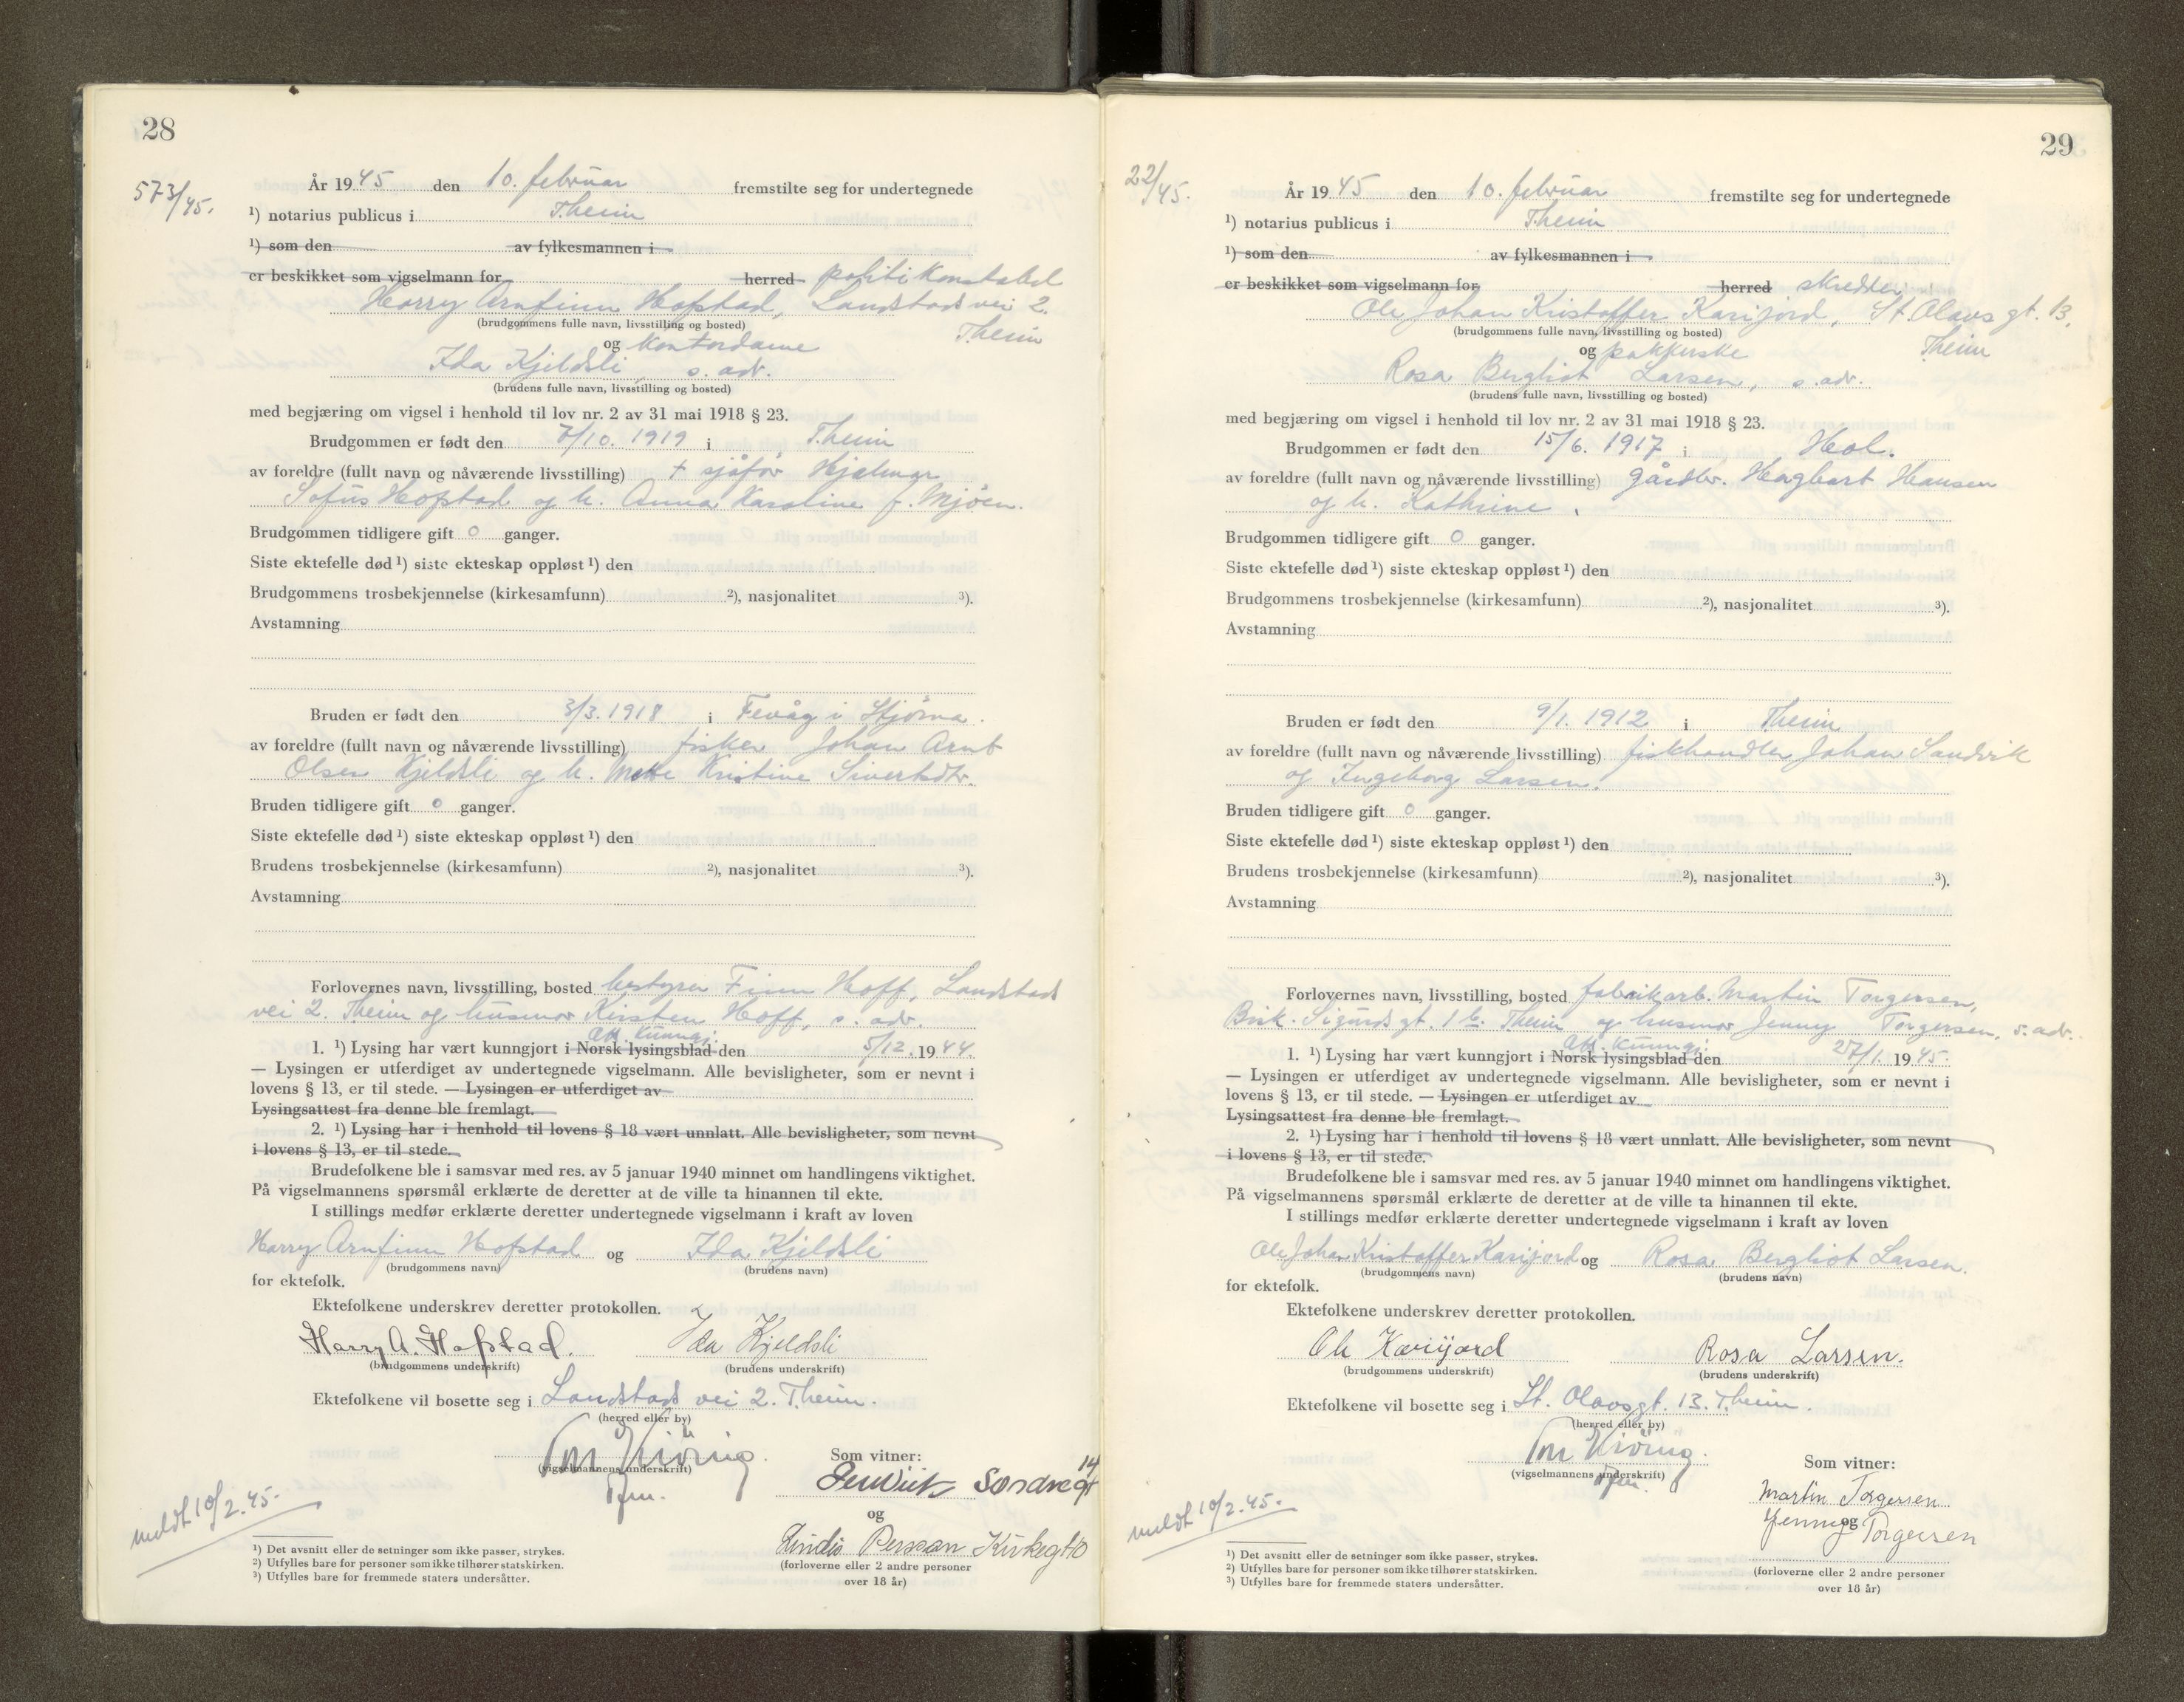 28
573/45.
År 1945 den 10. februar fremstilte seg for undertegnede
¹) notarius publicus i Theim
¹) som den av fylkesmannen i
er beskikket som vigselmann for herred politikonstabel
Harry Arnfinn Hofstad, Landstads vei 2.
(brudgommens fulle navn, livsstilling og bosted) Theim
og kontordame
Ida Kjeldsli, s. adr.
(brudens fulle navn, livsstilling og bosted)
med begjæring om vigsel i henhold til lov nr. 2 av 31 mai 1918 § 23.
Brudgommen er født den 7/10. 1919 i Theim
av foreldre (fullt navn og nåværende livsstilling) † sjåfør Hjalmar
Sofus Hofstad og h. Anna Karoline f. Mjøen.
Brudgommen tidligere gift 0 ganger.
Siste ektefelle død ¹) siste ekteskap oppløst ¹) den
Brudgommens trosbekjennelse (kirkesamfunn) ²), nasjonalitet ³).
Avstamning
Bruden er født den 3/3. 1918 i Fevåg i Stjørna.
av foreldre (fullt navn og nåværende livsstilling) fisker Johan Arnt
Olsen Kjeldsli og h. Mette Kristine Sivertsdtr.
Bruden tidligere gift 0 ganger.
Siste ektefelle død ¹) siste ekteskap oppløst ¹) den
Brudens trosbekjennelse (kirkesamfunn) ²), nasjonalitet ³).
Avstamning
Forlovernes navn, livsstilling, bosted bestyrer Finn Hoff, Landstads
vei 2. Theim og husmor Kirsten Hoff, s. adr.
Att. kunngj.
1. ¹) Lysing har vært kunngjort i Norsk lysingsblad den 5/12. 1944.
— Lysingen er utferdiget av undertegnede vigselmann. Alle bevisligheter, som er nevnt i
lovens § 13, er til stede. — Lysingen er utferdiget av
Lysingsattest fra denne ble fremlagt.
2. ¹) Lysing har i henhold til lovens § 18 vært unnlatt. Alle bevisligheter, som nevnt
i lovens § 13, er til stede.
Brudefolkene ble i samsvar med res. av 5 januar 1940 minnet om handlingens viktighet.
På vigselmannens spørsmål erklærte de deretter at de ville ta hinannen til ekte.
I stillings medfør erklærte deretter undertegnede vigselmann i kraft av loven
Harry Arnfinn Hofstad og Ida Kjeldsli
(brudgommens navn) (brudens navn)
for ektefolk.
Ektefolkene underskrev deretter protokollen.
Harry A. Hofstad. Ida Kjeldsli
(brudgommens underskrift) (brudens underskrift)
Ektefolkene vil bosette seg i Landstads vei 2. Theim.
(herred eller by)
Som vitner:
(vigselmannens underskrift)
Søndregt 14
og
Persson Kirkegt 10
(forloverne eller 2 andre personer
over 18 år)
meldt 10/2.45.
¹) Det avsnitt eller de setninger som ikke passer, strykes.
²) Utfylles bare for personer som ikke tilhører statskirken.
³) Utfylles bare for fremmede staters undersåtter.
29
22/45.
År 1945 den 10. februar fremstilte seg for undertegnede
¹) notarius publicus i Theim
¹) som den av fylkesmannen i
er beskikket som vigselmann for herred skredder
Ole Johan Kristoffer Karijord, St. Olavs gt. 13,
(brudgommens fulle navn, livsstilling og bosted) Theim
og pakkerske
Rosa Bergliot Larsen, s. adr.
(brudens fulle navn, livsstilling og bosted)
med begjæring om vigsel i henhold til lov nr. 2 av 31 mai 1918 § 23.
Brudgommen er født den 15/6. 1917 i Hol.
av foreldre (fullt navn og nåværende livsstilling) gårdbr. Hagbart Hansen
og h. Kathrine.
Brudgommen tidligere gift 0 ganger.
Siste ektefelle død ¹) siste ekteskap oppløst ¹) den
Brudgommens trosbekjennelse (kirkesamfunn) ²), nasjonalitet ³).
Avstamning
Bruden er født den 9/1. 1912 i Theim
av foreldre (fullt navn og nåværende livsstilling) fiskhandler Johan Sandvik
og Ingeborg Larsen.
Bruden tidligere gift 0 ganger.
Siste ektefelle død ¹) siste ekteskap oppløst ¹) den
Brudens trosbekjennelse (kirkesamfunn) ²), nasjonalitet ³).
Avstamning
Forlovernes navn, livsstilling, bosted fabrikarb. Martin Torgersen,
Bisk. Sigurds gt. 1 b. Theim og husmor Jenny Torgersen, s. adr.
Att. kunngj.
1. ¹) Lysing har vært kunngjort i Norsk lysingsblad den 27/1. 1945.
— Lysingen er utferdiget av undertegnede vigselmann. Alle bevisligheter, som er nevnt i
lovens § 13, er til stede. — Lysingen er utferdiget av
Lysingsattest fra denne ble fremlagt.
2. ¹) Lysing har i henhold til lovens § 18 vært unnlatt. Alle bevisligheter, som nevnt
i lovens § 13, er til stede.
Brudefolkene ble i samsvar med res. av 5 januar 1940 minnet om handlingens viktighet.
På vigselmannens spørsmål erklærte de deretter at de ville ta hinannen til ekte.
I stillings medfør erklærte deretter undertegnede vigselmann i kraft av loven
Ole Johan Kristoffer Karijord og Rosa Bergliot Larsen.
(brudgommens navn) (brudens navn)
for ektefolk.
Ektefolkene underskrev deretter protokollen.
Ole Karijord Rosa Larsen.
(brudgommens underskrift) (brudens underskrift)
Ektefolkene vil bosette seg i St. Olavsgt. 13. Theim.
(herred eller by)
Som vitner:
(vigselmannens underskrift)
Martin Torgersen
og
Jenny Torgersen
(forloverne eller 2 andre personer
over 18 år)
meldt 10/2.45.
¹) Det avsnitt eller de setninger som ikke passer, strykes.
²) Utfylles bare for personer som ikke tilhører statskirken.
³) Utfylles bare for fremmede staters undersåtter.